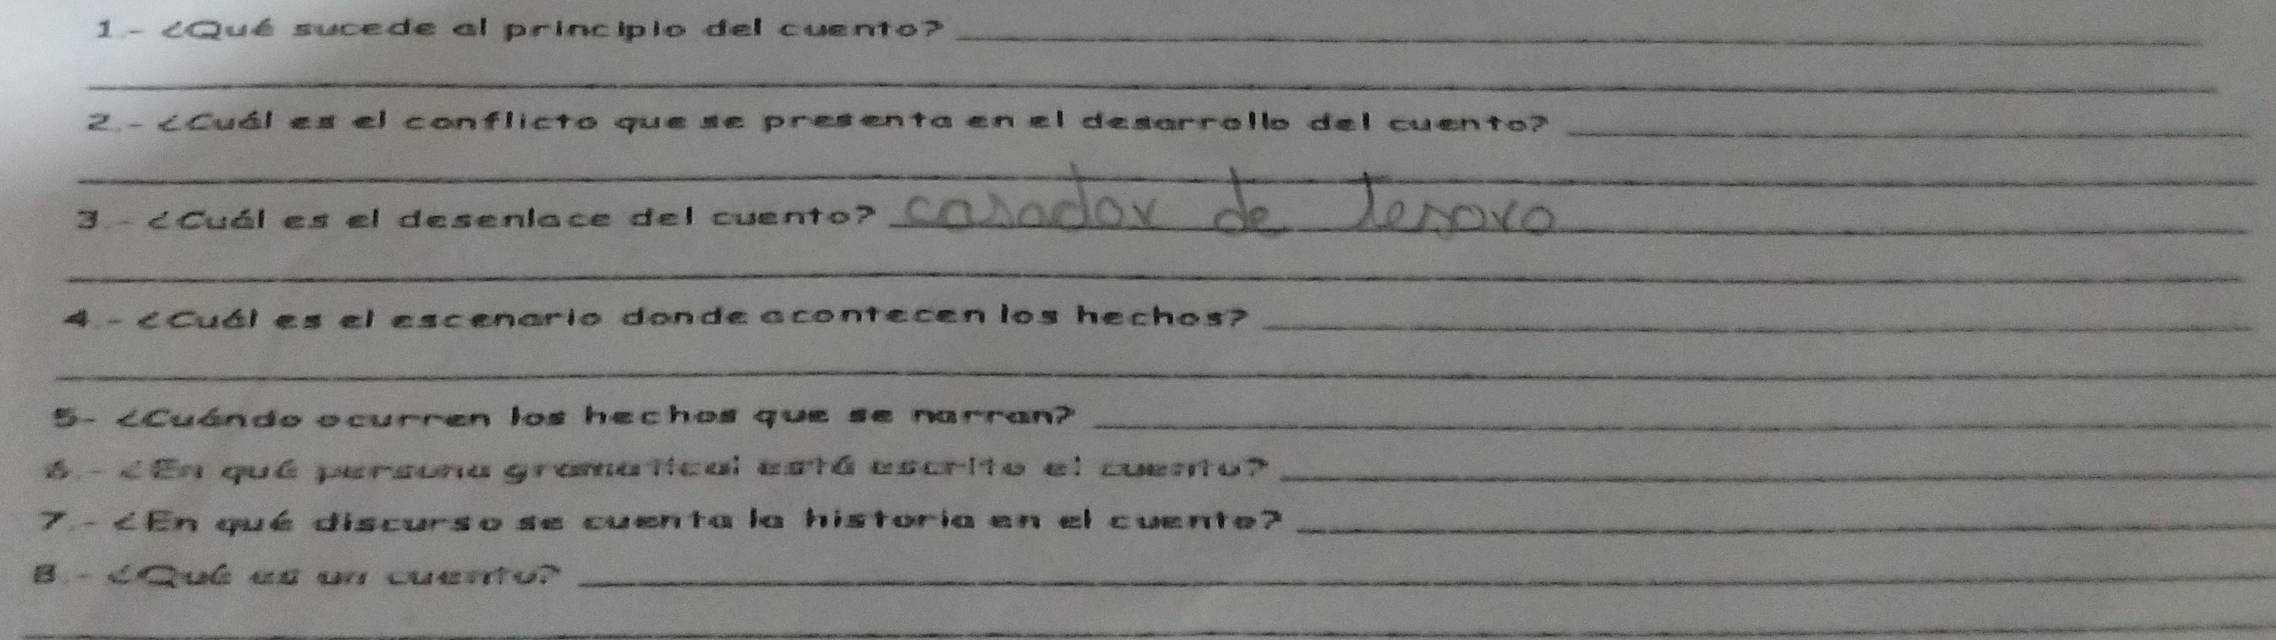 1.- ¿Qué sucede al principio del cuento?
2.- ¿Cuál es el conflicto que se presenta en el desarrollo del cuento?
3.- ¿Cuál es el desenlace del cuento? casador de tesoro
4.- ¿Cuál es el escenario donde acontecen los hechos?
5- ¿Cuándo ocurren los hechos que se narran?
6.- ¿En qué persona gramatical está escrito el cuento?
7.- ¿En qué discurso se cuenta la historia en el cuento?
8.- ¿Qué es un cuento?